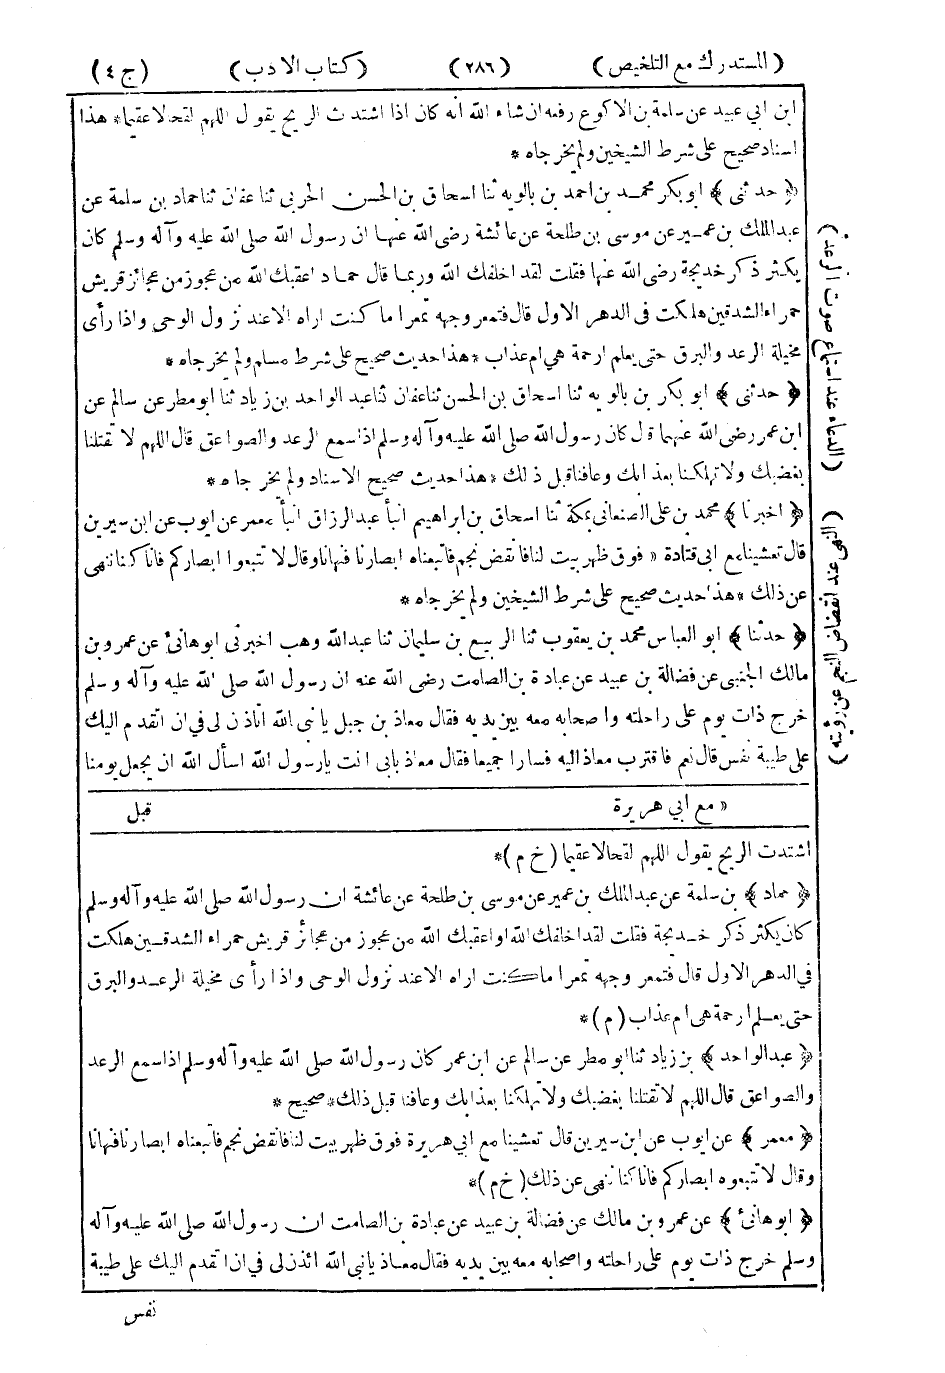 (المستدرك مع التلخيص) (٢٨٦) (كتاب الادب) (ج ٤)
ابن ابي عبيد عن سلمة بن الاكوع رفعه ان شاء الله انه كان اذا اشتدت الريح يقول اللهم لقحا لا عقيما * هذا
اسناد صحيح على شرط الشيخين ولم يخرجاه *
﴿ حدثنى ﴾ ابو بكر محمد بن احمد بن بالويه ثنا اسحاق بن الحسن الحربي ثنا عفان ثنا حماد بن سلمة عن
عبد الملك بن عمير عن موسى بن طلحة عن عائشة رضى الله عنها ان رسول الله صلى الله عليه وآله وسلم كان
يكثر ذكر خديجة رضى الله عنها فقلت لقد اخلفك الله وربما قال حماد اعقبك الله من عجوز من عجائز قريش
حمراء الشدقين هلكت فى الدهر الاول قال فتمعر وجهه تمعرا ما كنت اراه الا عند نزول الوحى واذا رأى
مخيلة الرعد والبرق حتى يعلم ارحمة هي ام عذاب * هذا حديث صحيح على شرط مسلم ولم يخرجاه *
﴿ حدثنى ﴾ ابو بكر بن بالويه ثنا اسحاق بن الحسن ثنا عفان ثنا عبد الواحد بن زياد ثنا ابو مطر عن سالم عن
ابن عمر رضى الله عنهما قال كان رسول الله صلى الله عليه وآله وسلم اذا سمع الرعد والصواعق قال اللهم لا تقتلنا
بغضبك ولا تهلكنا بعذابك وعافنا قبل ذلك * هذا حديث صحيح الاسناد ولم يخرجاه *
﴿ اخبرنا ﴾ محمد بن على الصنعانى بمكة ثنا اسحاق بن ابراهيم انبأ عبد الرزاق انبأ معمر عن ايوب عن ابن سيرين
قال تعشينا مع ابي قتادة « فوق ظهر بيت لنا فانقض نجم فاتبعناه ابصارنا فنهانا وقال لا تتبعوا ابصاركم فانا كنا ننهى
عن ذلك * هذا حديث صحيح على شرط الشيخين ولم يخرجاه *
﴿ حدثنا ﴾ ابو العباس محمد بن يعقوب ثنا الربيع بن سليمان ثنا عبد الله وهب اخبرنى ابو هانئ عن عمرو بن
مالك الجنبى عن فضالة بن عبيد عن عبادة بن الصامت رضى الله عنه ان رسول الله صلى الله عليه وآله وسلم
خرج ذات يوم على راحلته واصحابه معه بين يديه فقال معاذ بن جبل يا نبى الله اتأذن لى فى ان اتقدم اليك
على طيبة نفس قال نعم فاقترب معاذ اليه فسارا جميعا فقال معاذ بابى انت يا رسول الله اسأل الله ان يجعل يومنا
« مع ابي هريرة
قبل
اشتدت الريح يقول اللهم لقحا لا عقيما (خ م) *
﴿ حماد ﴾ بن سلمة عن عبد الملك بن عمير عن موسى بن طلحة عن عائشة ان رسول الله صلى الله عليه وآله وسلم
كان يكثر ذكر خديجة فقلت لقد اخلفك الله او اعقبك الله من عجوز من عجائز قريش حمراء الشدقين هلكت
فى الدهر الاول قال فتمعر وجهه تمعرا ما كنت اراه الا عند نزول الوحى واذا رأى مخيلة الرعد والبرق
حتى يعلم ارحمة هى ام عذاب (م) *
﴿ عبد الواحد ﴾ بن زياد ثنا ابو مطر عن سالم عن ابن عمر كان رسول الله صلى الله عليه وآله وسلم اذا سمع الرعد
والصواعق قال اللهم لا تقتلنا بغضبك ولا تهلكنا بعذابك وعافنا قبل ذلك * صحيح *
﴿ معمر ﴾ عن ايوب عن ابن سيرين قال تعشينا مع ابي هريرة فوق ظهر بيت لنا فانقض نجم فاتبعناه ابصارنا فنهانا
وقال لا تتبعوه ابصاركم فانا كنا ننهى عن ذلك (خ م) *
﴿ ابو هانئ ﴾ عن عمرو بن مالك عن فضالة بن عبيد عن عبادة بن الصامت ان رسول الله صلى الله عليه وآله
وسلم خرج ذات يوم على راحلته واصحابه معه بين يديه فقال معاذ يا نبى الله ائذن لى فى ان اتقدم اليك على طيبة
نفس
(الدعاء عند استماع صوت الرعد)
(النهى عند انقضاض النجم عن رؤيته)